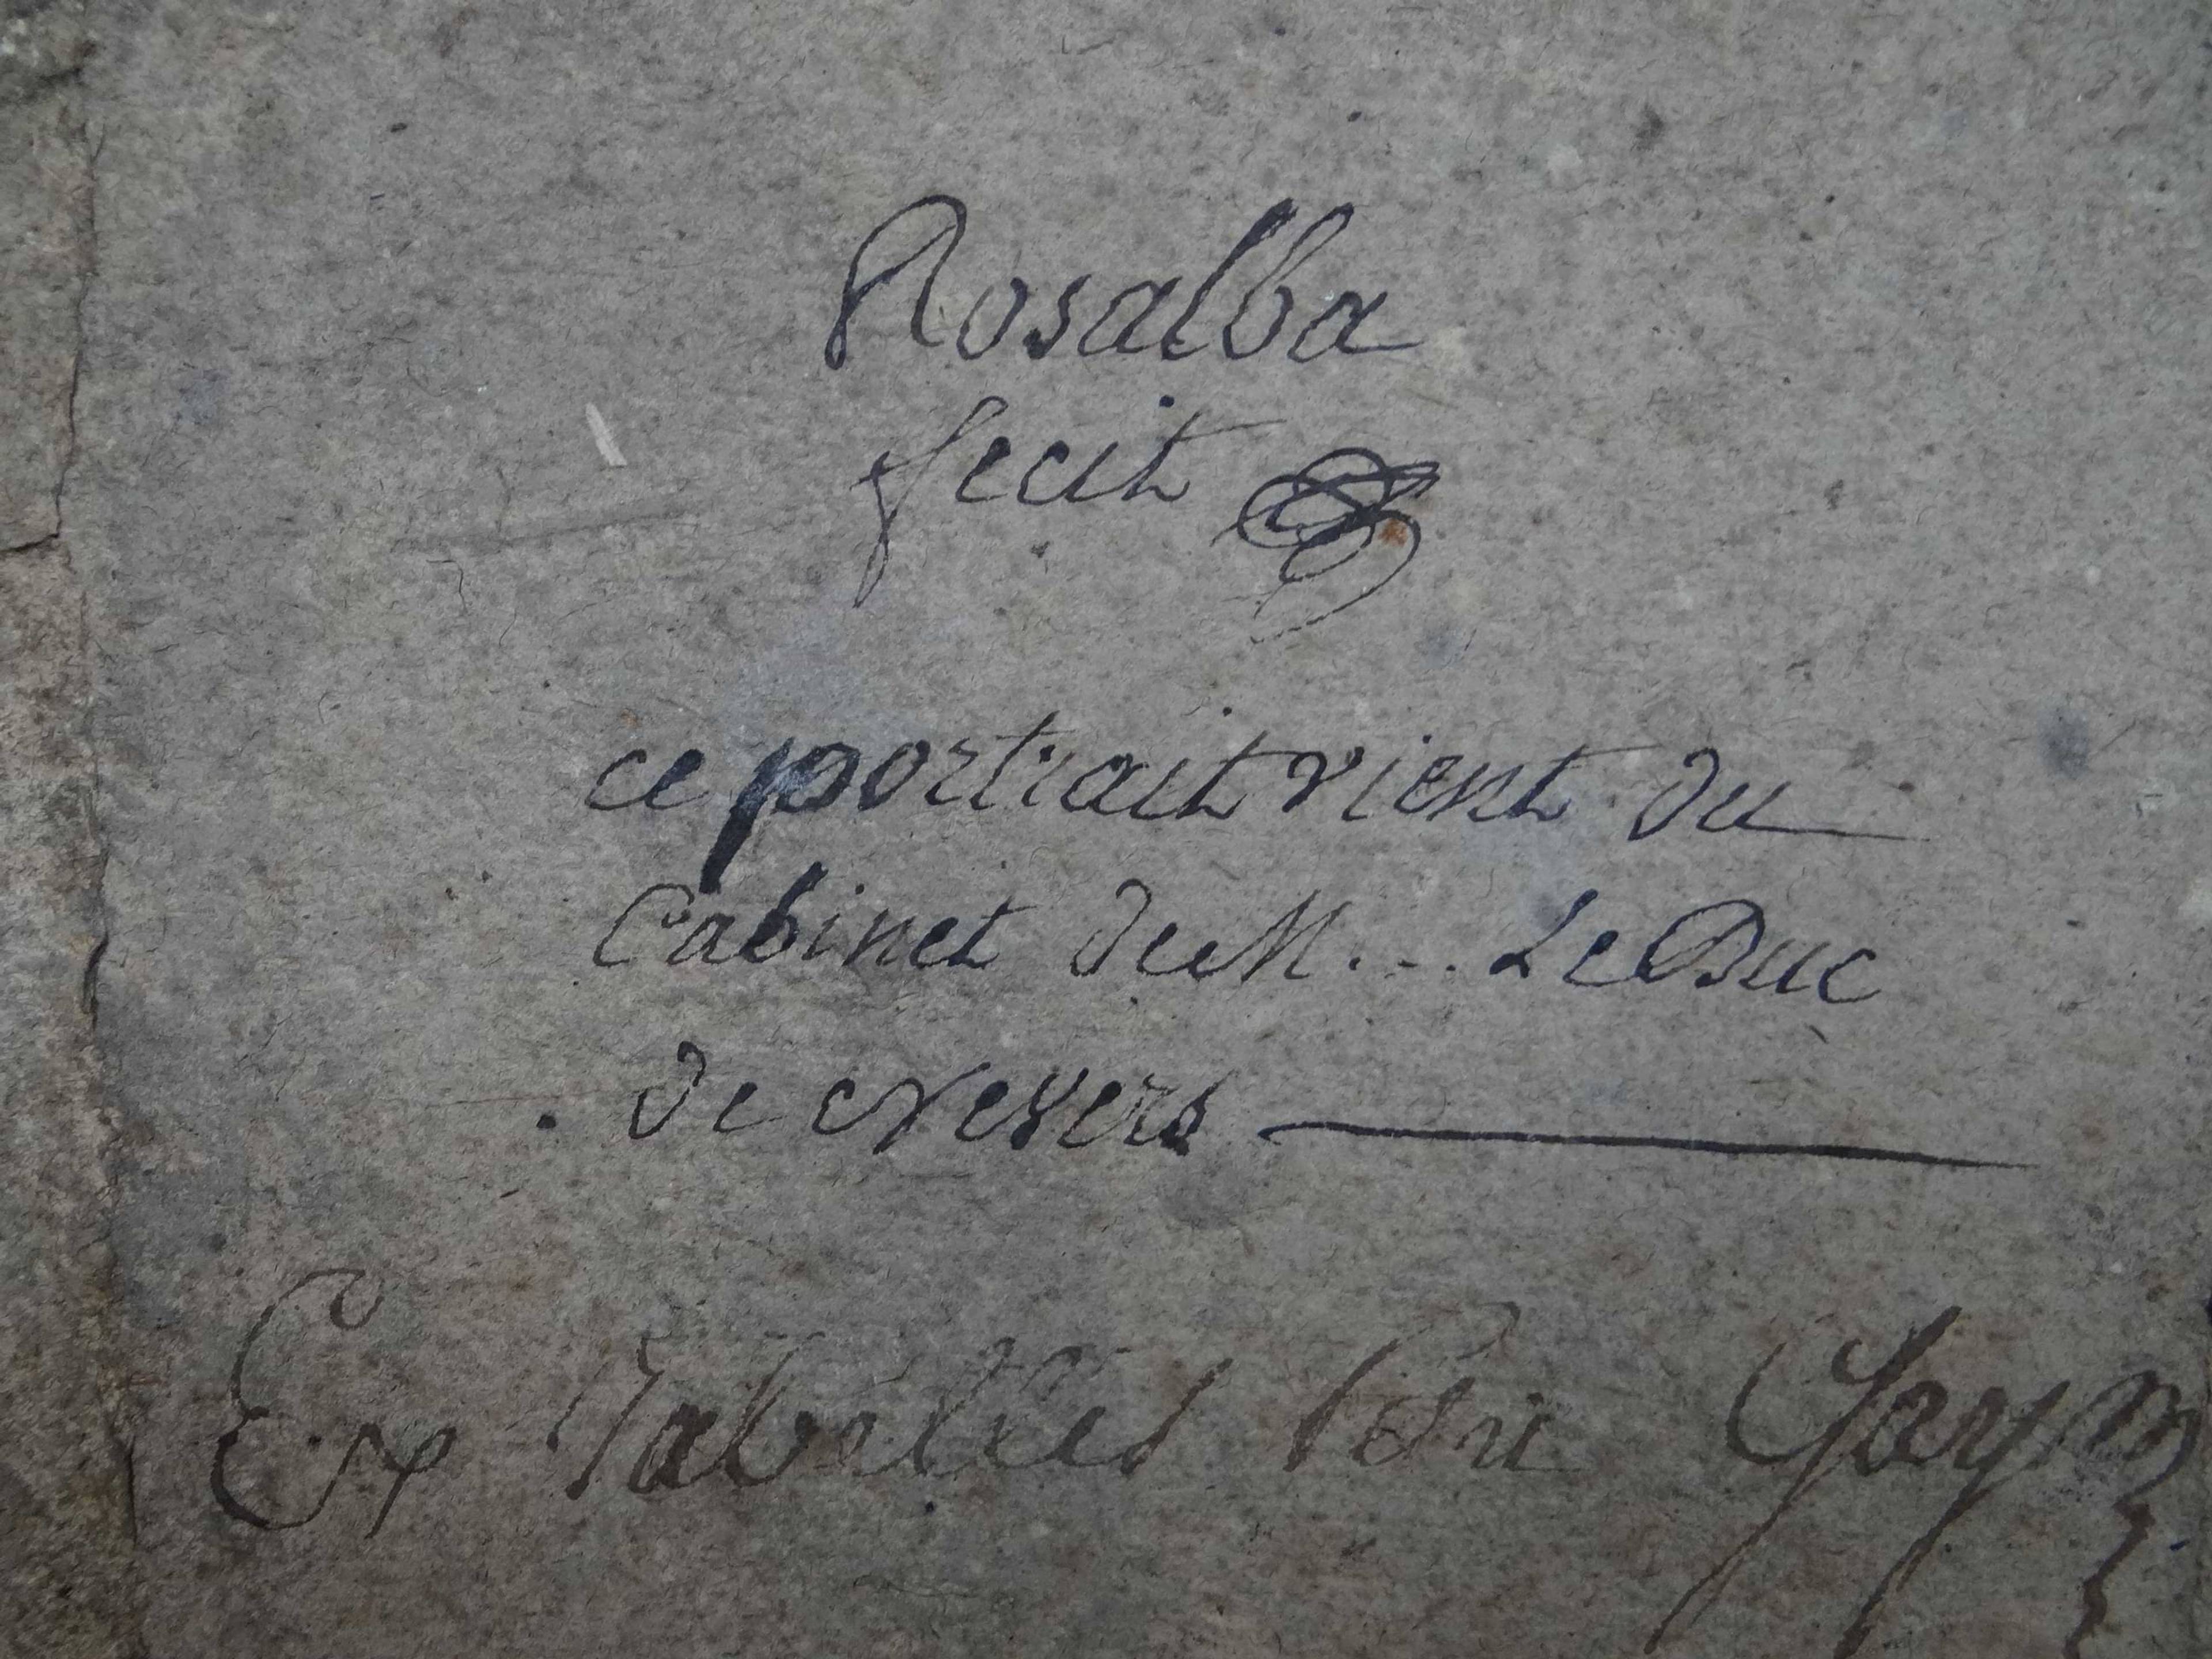 Rosalba
fecit
ce portrait vient du
Cabinet de M... Le Duc
de Nevers
Ex Tabellis